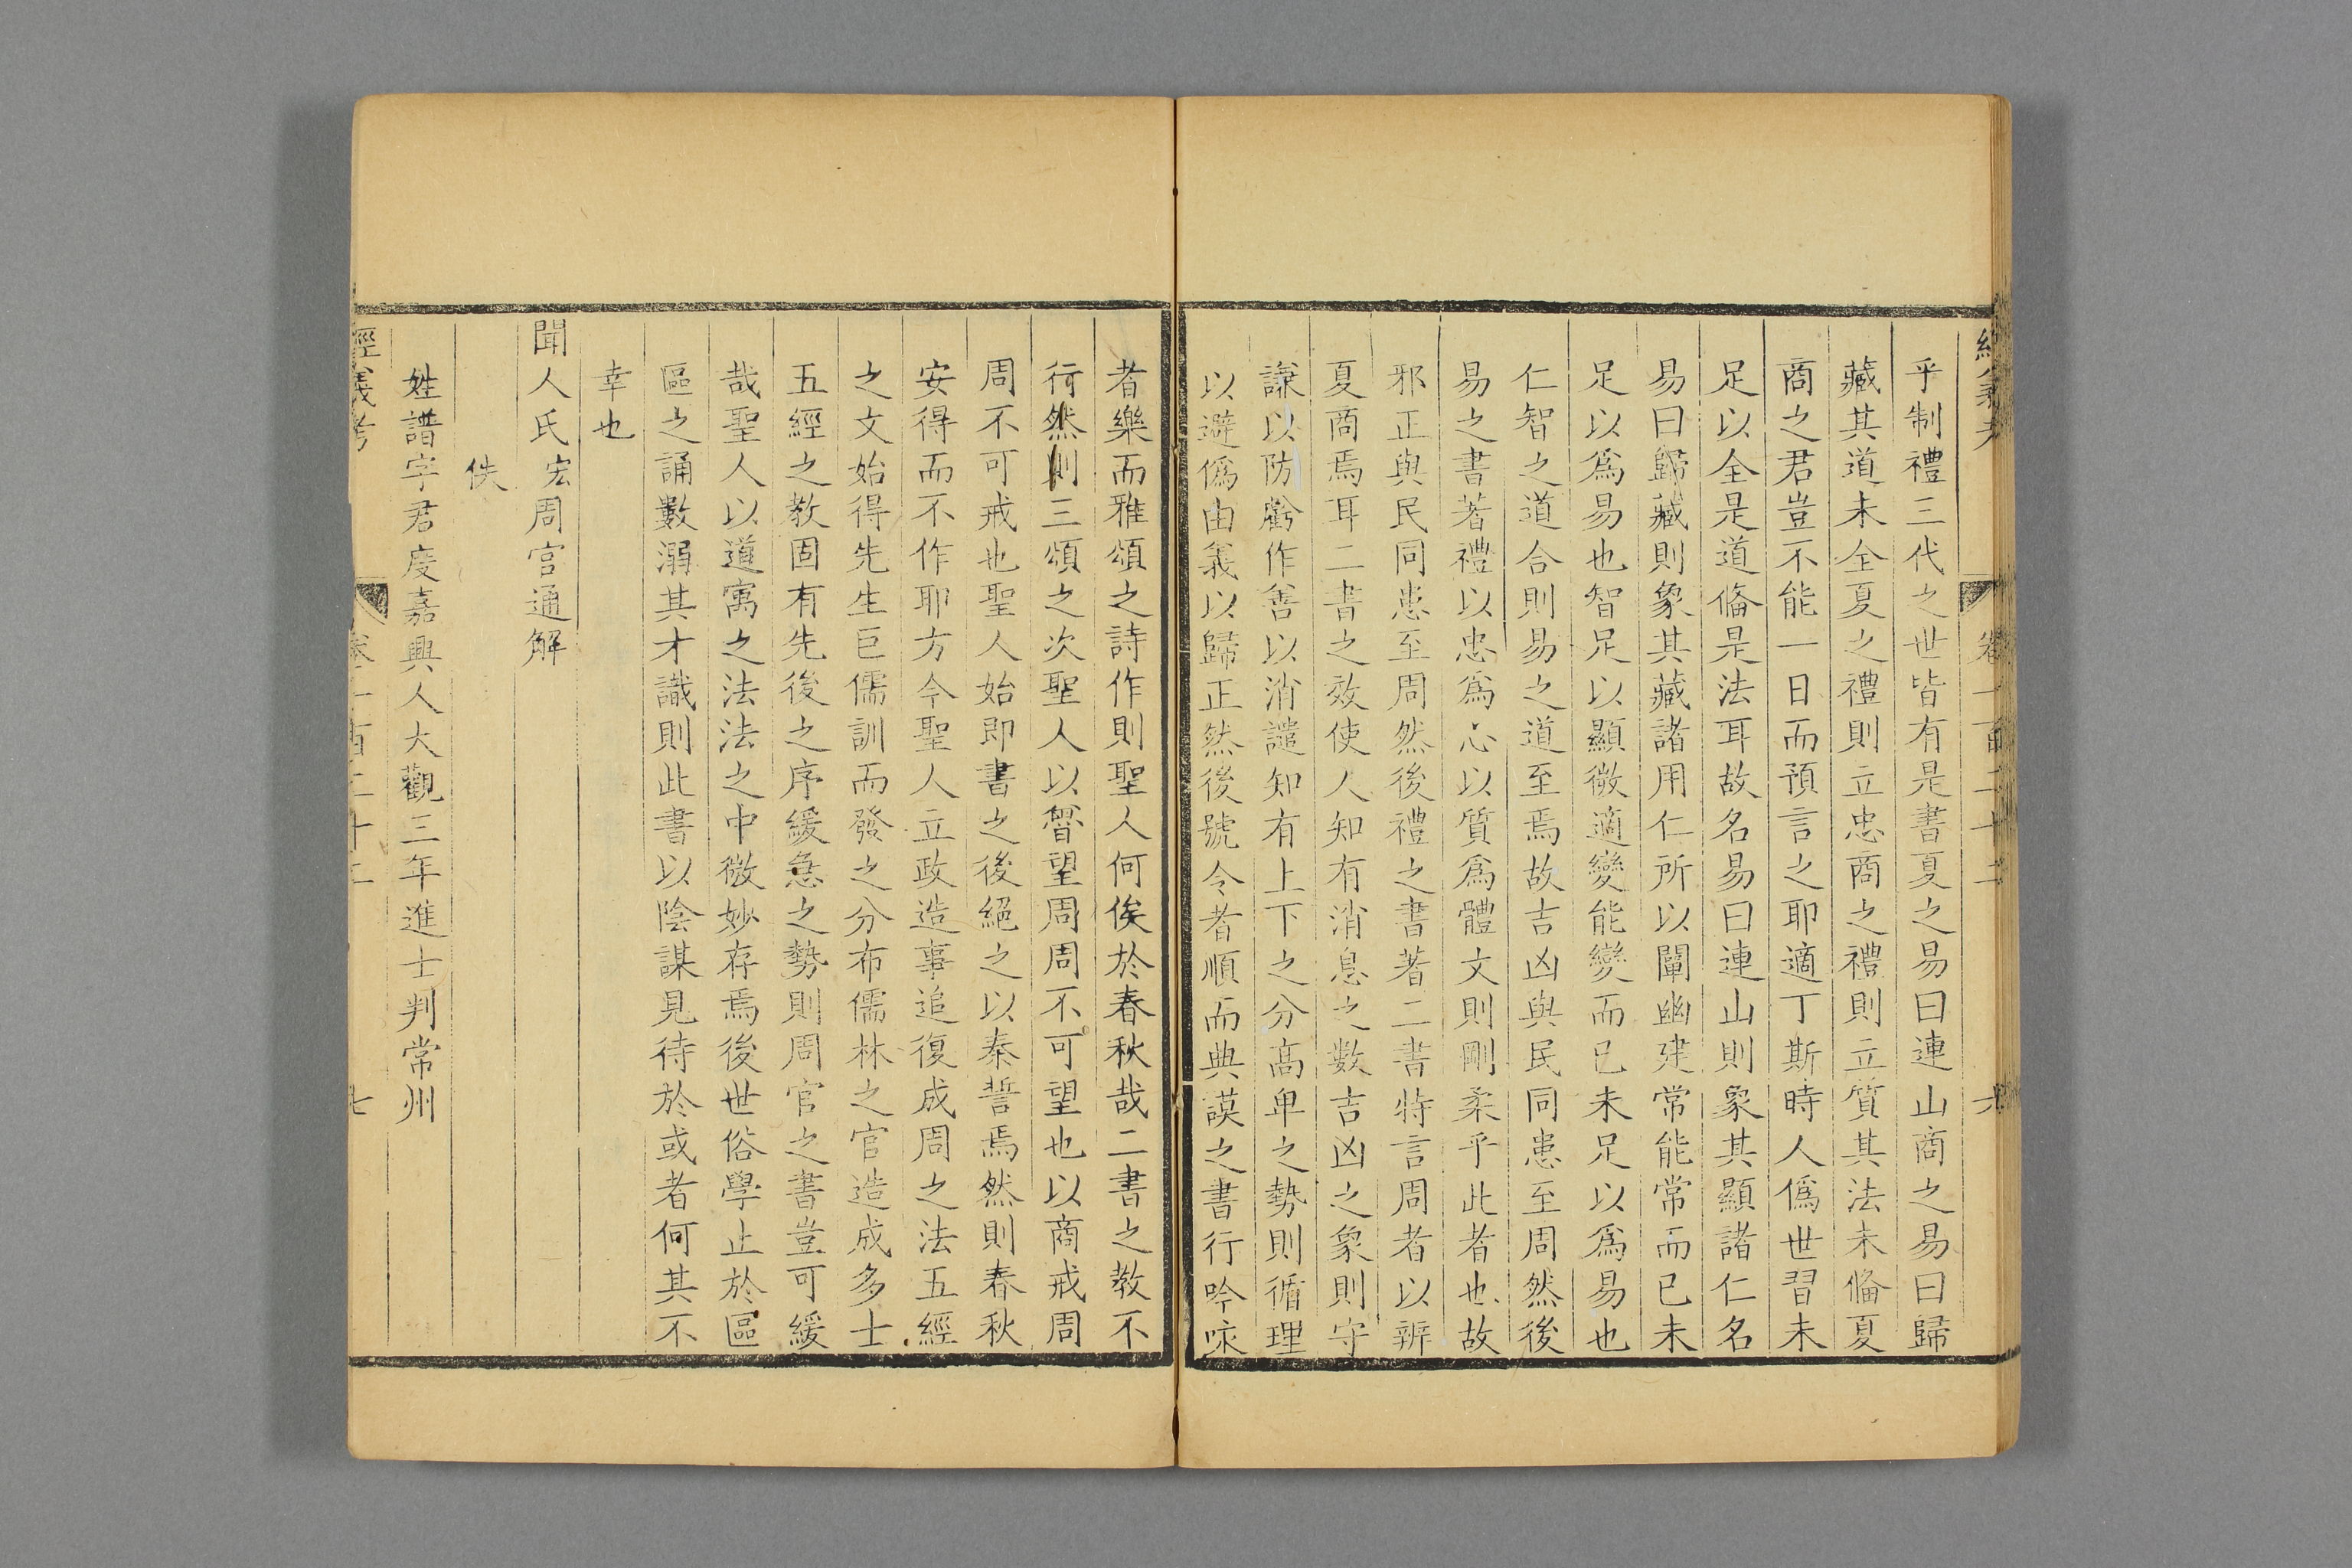 乎制禮三代之世皆有是書夏之易曰連山商之易曰歸
藏其道未全夏之禮則立忠商之禮則立質其法未偹夏
商之君豈不能一日而預言之耶適丁斯時人僞世習未
足以全是道偹是法耳故名易曰連山則象其顯諸仁名
易曰歸藏則象其藏諸用仁所以闡幽建常能常而已未
足以爲易也智足以顯微適變能變而已未足以爲易也
仁智之道合則易之道至焉故吉凶與民同患至周然後
易之書著禮以忠爲心以質爲體文則剛柔乎此者也故
邪正與民同患至周然後禮之書著二書特言周者以辨
夏商焉耳二書之效使人知有消息之數吉凶之象則守
謙以防虧作善以消譴知有上下之分高卑之勢則循理
以避僞由義以歸正然後號令者順而典謨之書行吟咏
者樂而雅頌之詩作則聖人何俟於春秋哉二書之教不
行然則三頌之次聖人以魯望周周不可望也以商戒周
周不可戒也聖人始即書之後絕之以秦誓焉然則春秋
安得而不作耶方今聖人立政造事追復成周之法五經
之文始得先生巨儒訓而發之分布儒林之官造成多士
五經之教固有先後之序緩急之勢則周官之書豈可緩
哉聖人以道寓之法法之中微妙存焉後世俗學止於區
區之誦數溺其才識則此書以陰謀見待於或者何其不
幸也
聞人氏宏周官通解
佚
姓譜字君度嘉興人大觀三年進士判常州
經義考 卷一百二十二 七